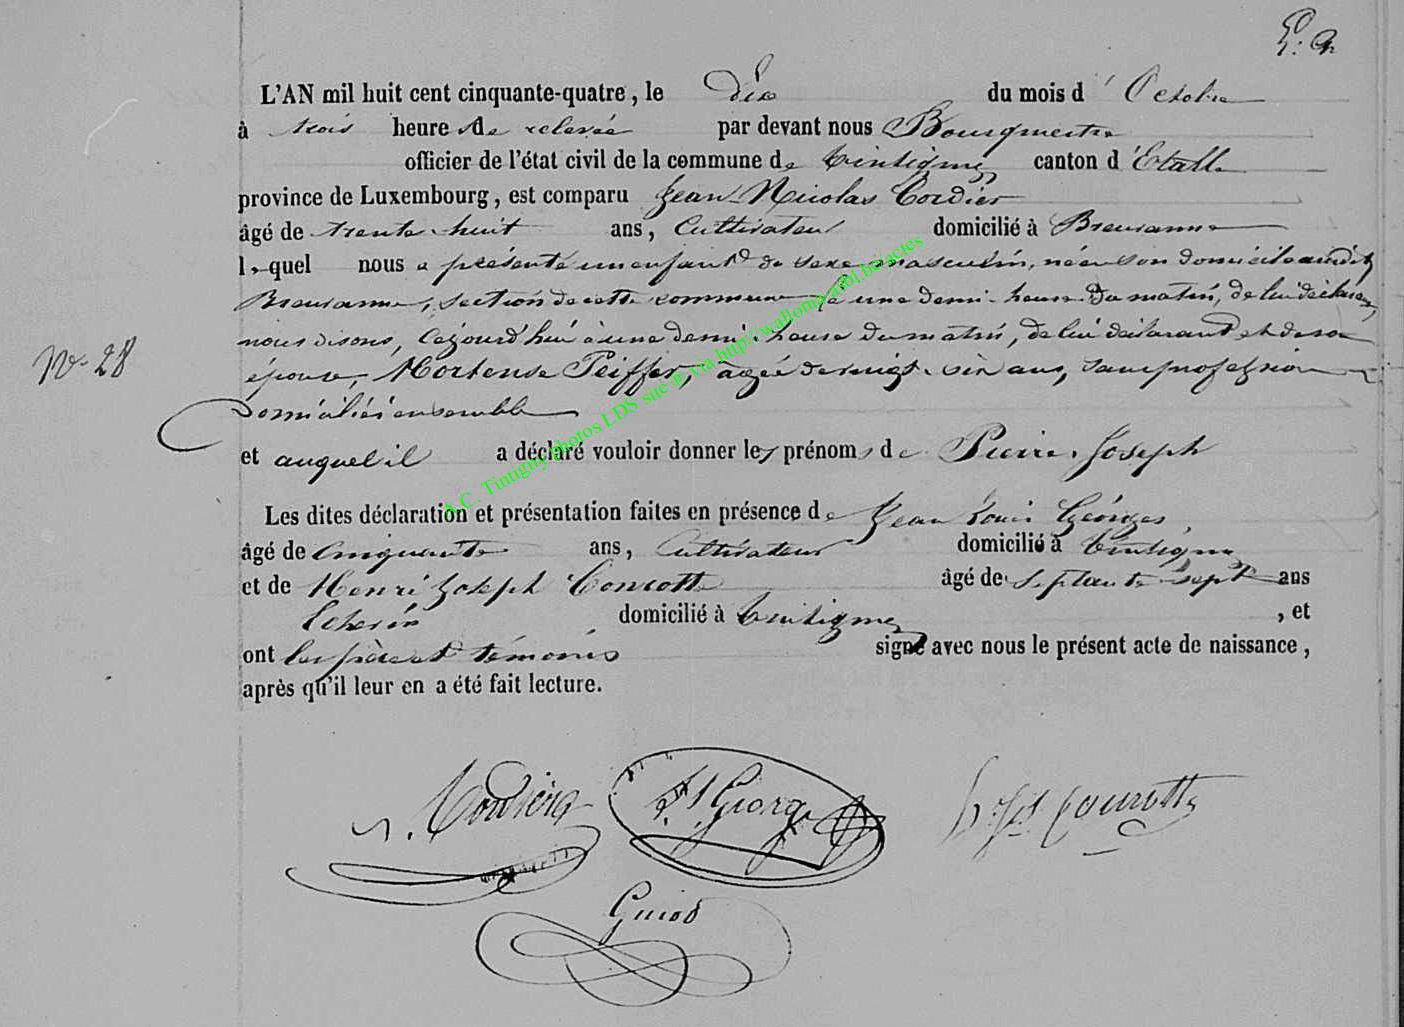 L'AN mil huit cent cinquante-quatre, le Dix du mois d'Octobre
à trois heure de relevée par devant nous Bourgmestre
officier de l'état civil de la commune de Tintigny canton d'Etalle
province de Luxembourg, est comparu Jean Nicolas Cordier
âgé de trente-huit ans, Cultivateur domicilié à Breuvanne
lequel nous a présenté un enfant du sexe masculin, né en son domicile audit
Breuvanne, section de cette commune à une demi-heure du matin, de lui déclarant,
nous disons, cejourd'hui à une demi-heure du matin, de lui déclarant et de son
épouse, Hortense Peiffer, âgée de vingt-six ans, sans profession
domiciliés ensemble
et auquel il a déclaré vouloir donner les prénoms de Pierre Joseph
Les dites déclaration et présentation faites en présence de Jean Louis Georges,
âgé de cinquante ans, Cultivateur domicilié à Tintigny
et de Henri Joseph Courotte âgé de septante-sept ans
Echevin domicilié à Tintigny, et
ont les père et témoins signé avec nous le présent acte de naissance,
après qu'il leur en a été fait lecture.
N° 28
A.C. Tintigny photos LDS site via http://wallonia-asbl.be/actes
Cordier
Georges
Courotte
Guiod